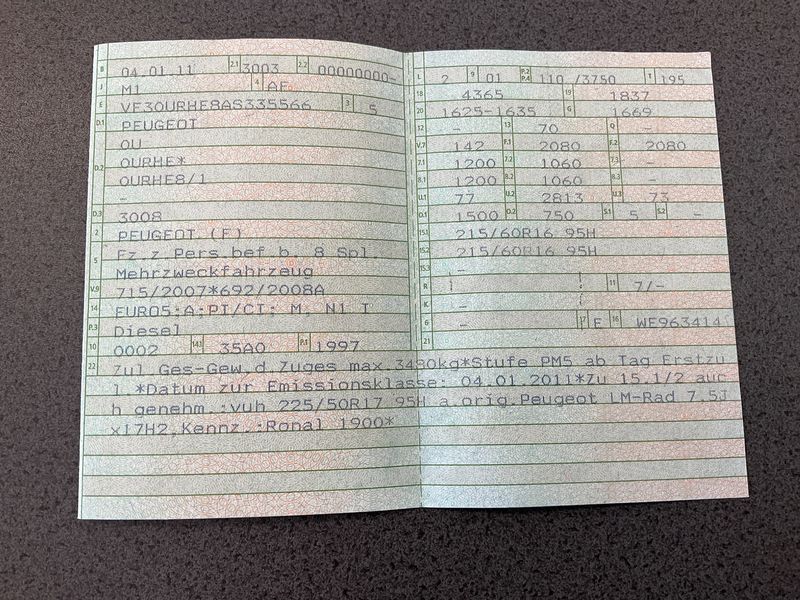 B 04.01.11 2.1 3003 2.2 00000000-
J M1 4 AF
E VF30URHE8AS335566 3 5
D.1 PEUGEOT
0U
D.2 0URHE*
0URHE8/1
-
D.3 3008
2 PEUGEOT (F)
5 Fz.z.Pers.bef.b. 8 Spl.
Mehrzweckfahrzeug
V.9 715/2007*692/2008A
14 EURO5;A;PI/CI; M, N1 I
P.3 Diesel
10 0002 14.1 35A0 P.1 1997
L 2 9 01 P.2 P.4 110 /3750 T 195
18 4365 19 1837
20 1625-1635 G 1669
12 - 13 70 Q -
V.7 142 F.1 2080 F.2 2080
7.1 1200 7.2 1060 7.3 -
8.1 1200 8.2 1060 8.3 -
U.1 77 U.2 2813 U.3 73
O.1 1500 O.2 750 S.1 5 S.2 -
15.1 215/60R16 95H
15.2 215/60R16 95H
15.3 -
R 11 7/-
K -
6 - 17 E 16 WF963414
21
22 Zul Ges-Gew.d Zuges max.3430kg*Stufe PM5 ab Tag Erstzu
l.*Datum zur Emissionsklasse: 04.01.2011*Zu 15.1/2 auc
h genehm.:vuh 225/50R17 95H a.orig.Peugeot LM-Rad 7.5J
x17H2,Kennz.:Ronal 1900*